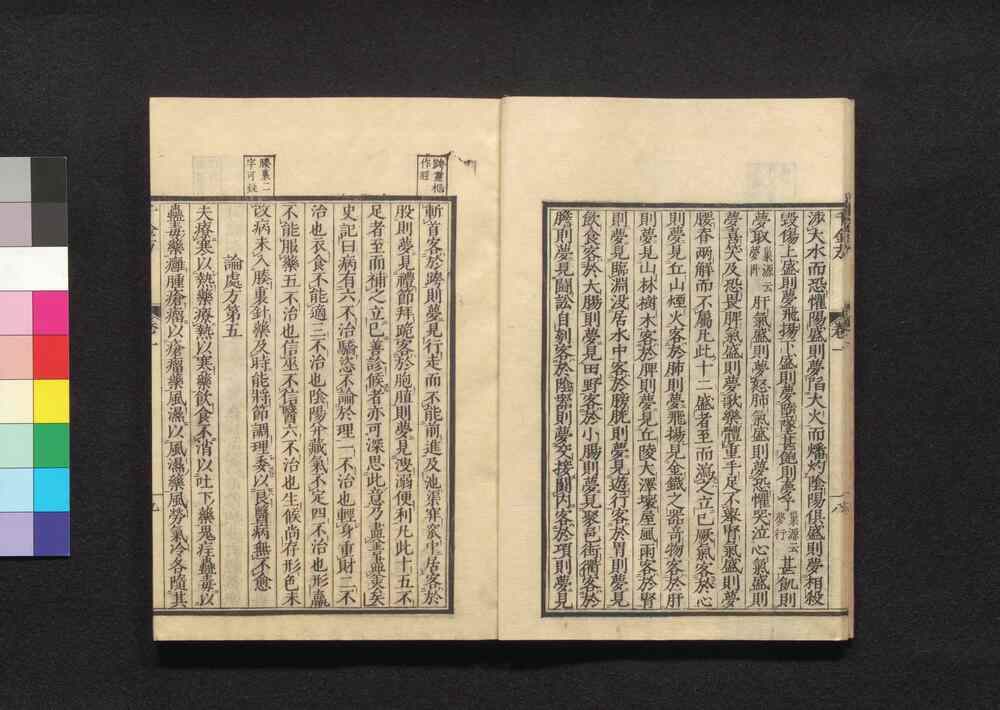 涉大水而恐懼陽盛則夢陷大火而燔灼陰陽俱盛則夢相殺
毀傷上盛則夢飛揚下盛則夢墮墜甚飽則夢予巢源云夢行甚飢則
夢取巢源云夢卧肝氣盛則夢怒肺氣盛則夢恐懼哭泣心氣盛則
夢喜笑及恐畏脾氣盛則夢歌樂體重手足不舉腎氣盛則夢
腰脊兩解而不屬凡此十二盛者至而瀉之立已厥氣客於心
則夢見丘山煙火客於肺則夢飛揚見金鐵之器奇物客於肝
則夢見山林樹木客於脾則夢見丘陵大澤壞屋風雨客於腎
則夢見臨淵没居水中客於膀胱則夢見遊行客於胃則夢見
飲食客於大腸則夢見田野客於小腸則夢見聚邑街衢客於
膽則夢見鬭訟自刳客於陰器則夢交接鬭内客於項則夢見
千金方 卷一
斬首客於跨則夢見行走而不能前進及池渠穽窌中居客於
股則夢見禮節拜跪客於胞䐈則夢見溲溺便利凡此十五不
足者至而補之立已善診候者亦可深思此意乃盡善盡美矣
史記曰病有六不治驕恣不論於理一不治也輕身重財二不
治也衣食不能適三不治也陰陽并藏氣不定四不治也形羸
不能服藥五不治也信巫不信醫六不治也生候尚存形色未
改病未入腠裏針藥及時能將節調理委以良醫病無不愈
論處方第五
夫療寒以熱藥療熱以寒藥飲食不消以吐下藥鬼疰蠱毒以
蠱毒藥癰腫瘡瘤以瘡瘤藥風濕以風濕藥風勞氣冷各隨其
跨靈樞作脛
腠裏二字可疑